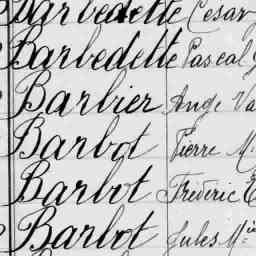 Barbedette César
Barbedette Pascal
Barbier Ange Va
Barbot Pierre M.
Barbot Fréderic E
Barbot Jules M.